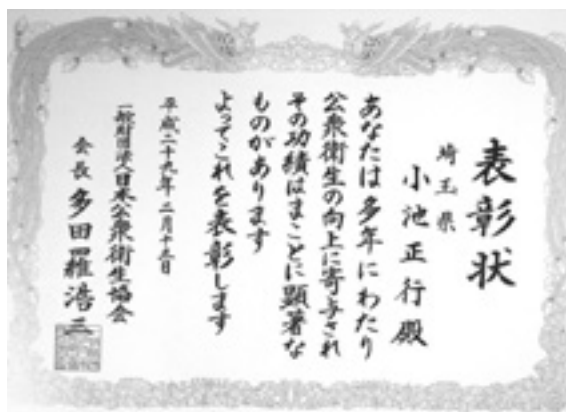 表彰状
埼玉県
小池正行殿
あなたは多年にわたり
公衆衛生の向上に寄与され
その功績はまことに顕著な
ものがあります
よってこれを表彰します
平成二十九年二月十五日
一般財団法人日本公衆衛生協会
会長 多田羅浩三